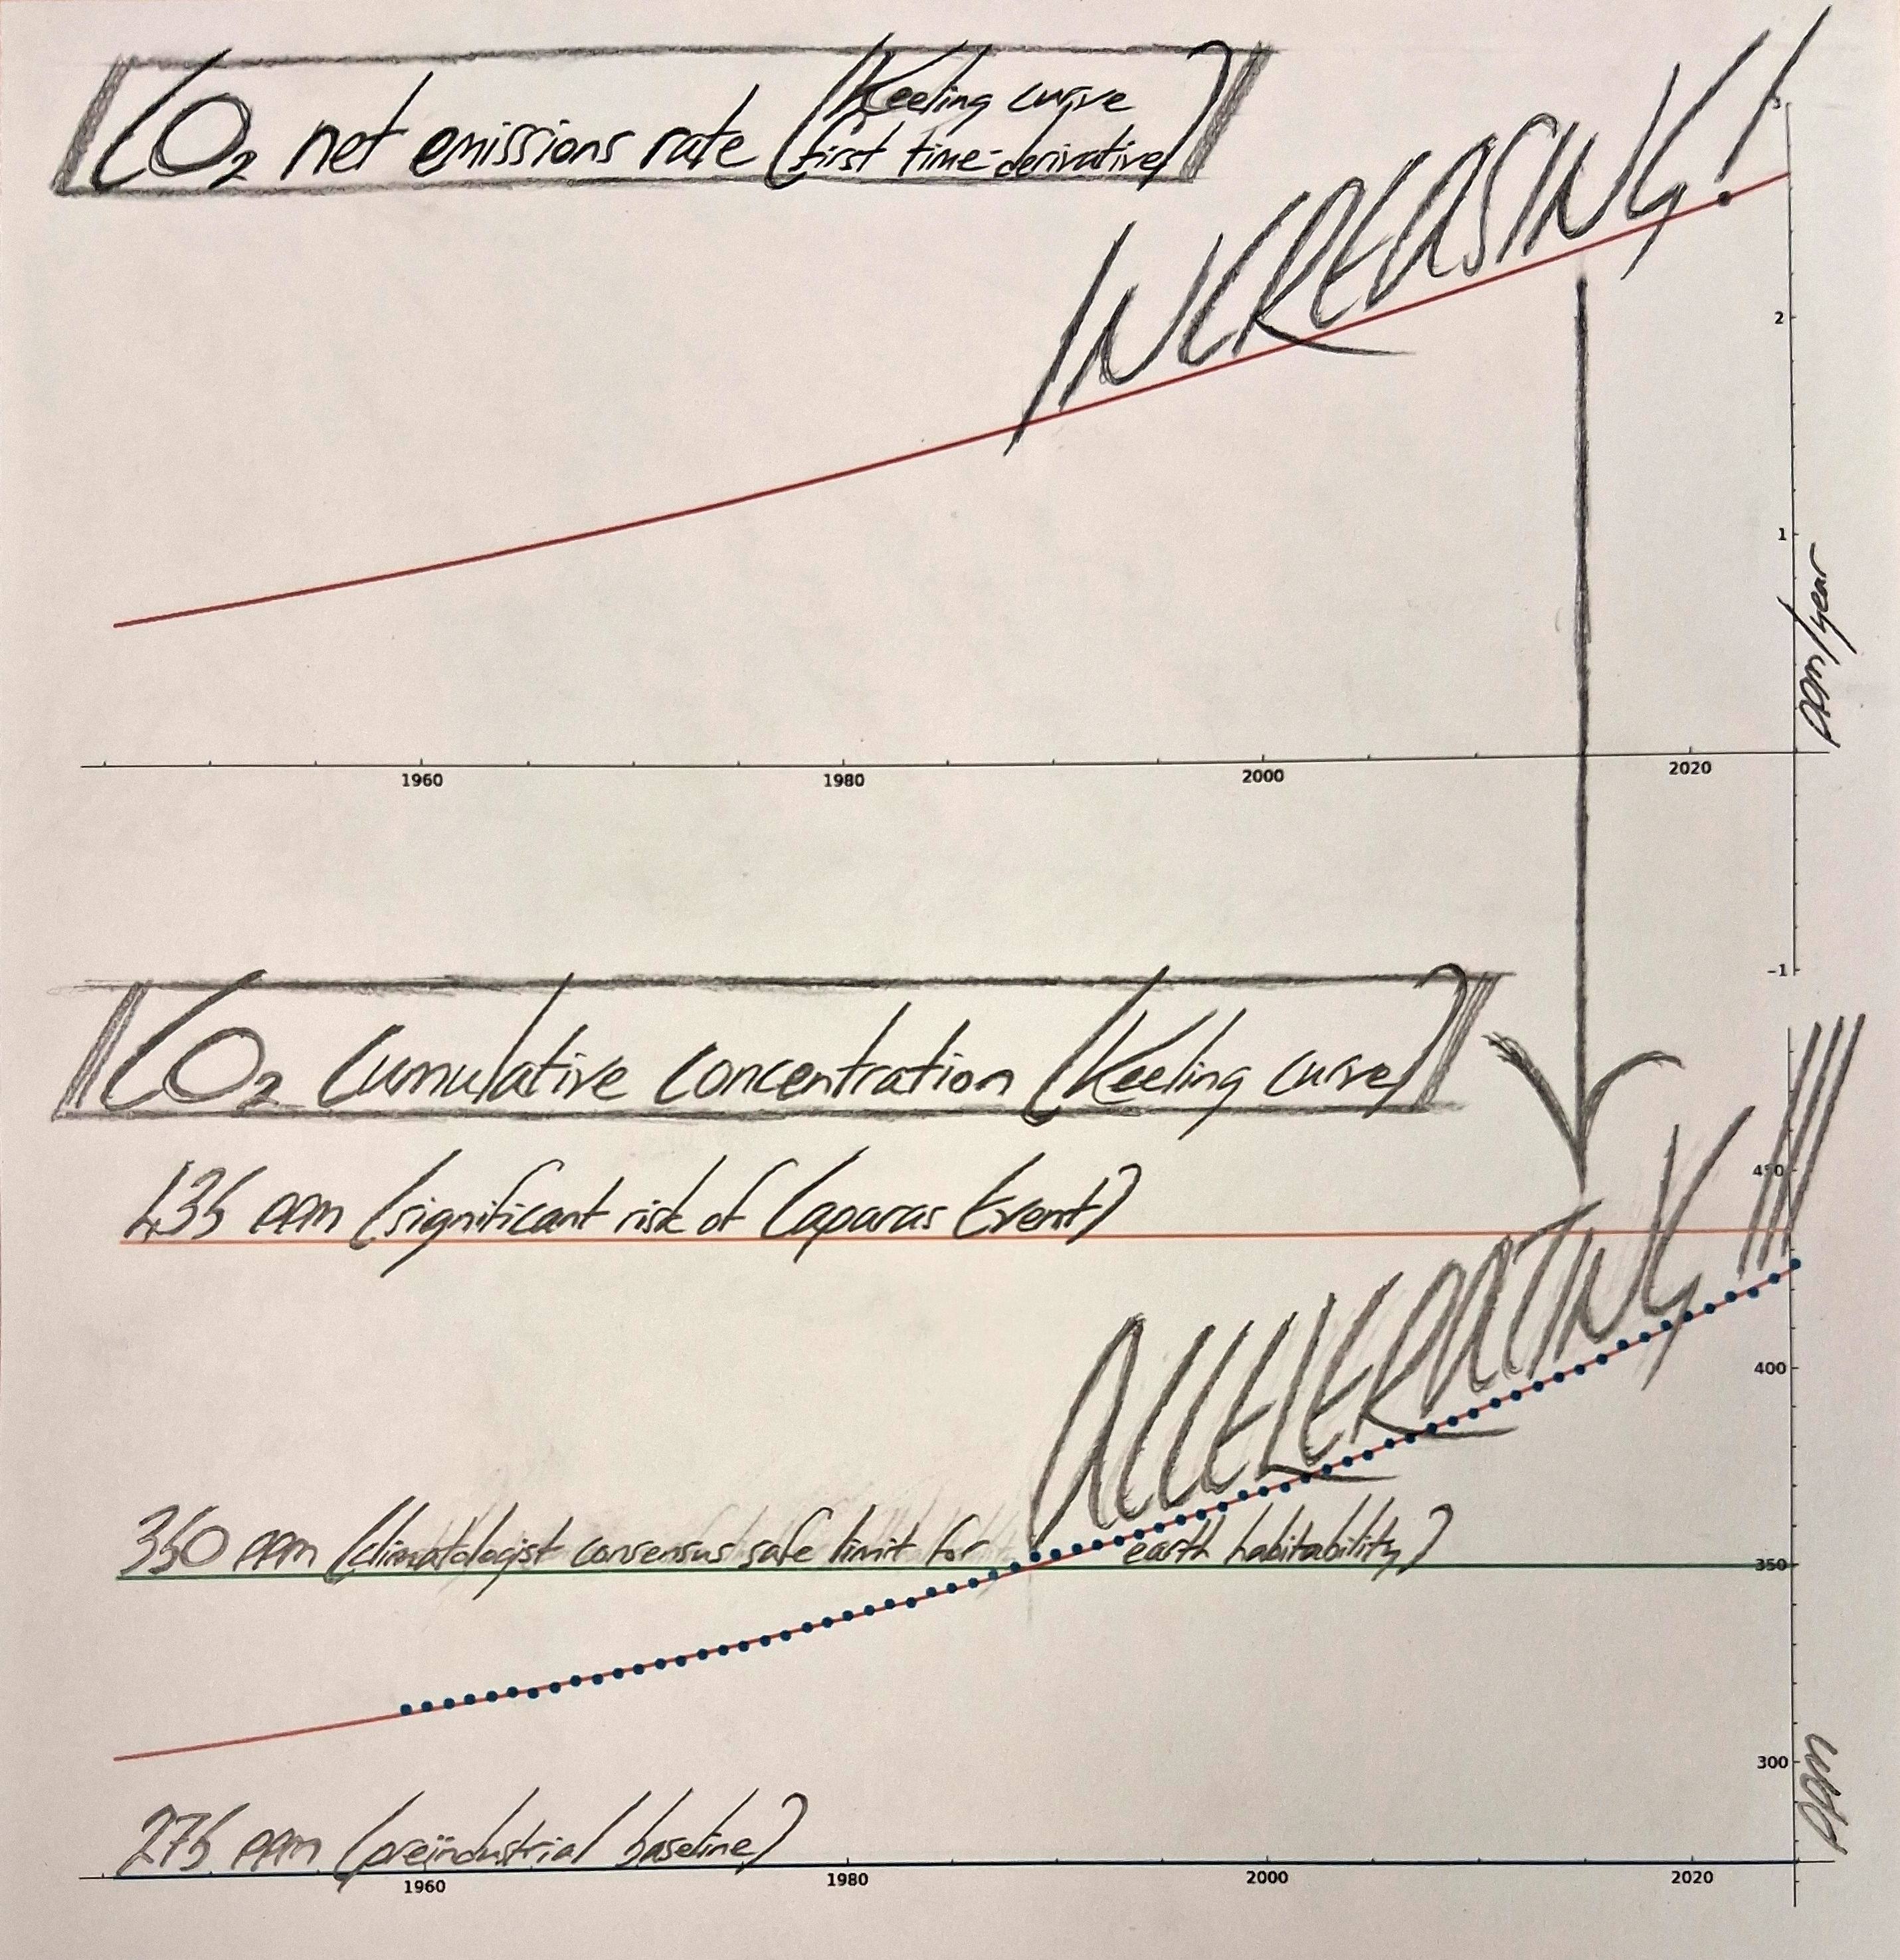 CO2 net emissions rate (Keeling curve
first time-derivative)
INCREASING!
3
2
1
ppm/year
1960 1980 2000 2020
-1
CO2 cumulative concentration (Keeling curve)
435 ppm (significant risk of Caparas Event)
450
ACCELERATING!!!
400
350 ppm (climatologist consensus safe limit for earth habitability)
350
300
ppm
275 ppm (preïndustrial baseline)
1960 1980 2000 2020